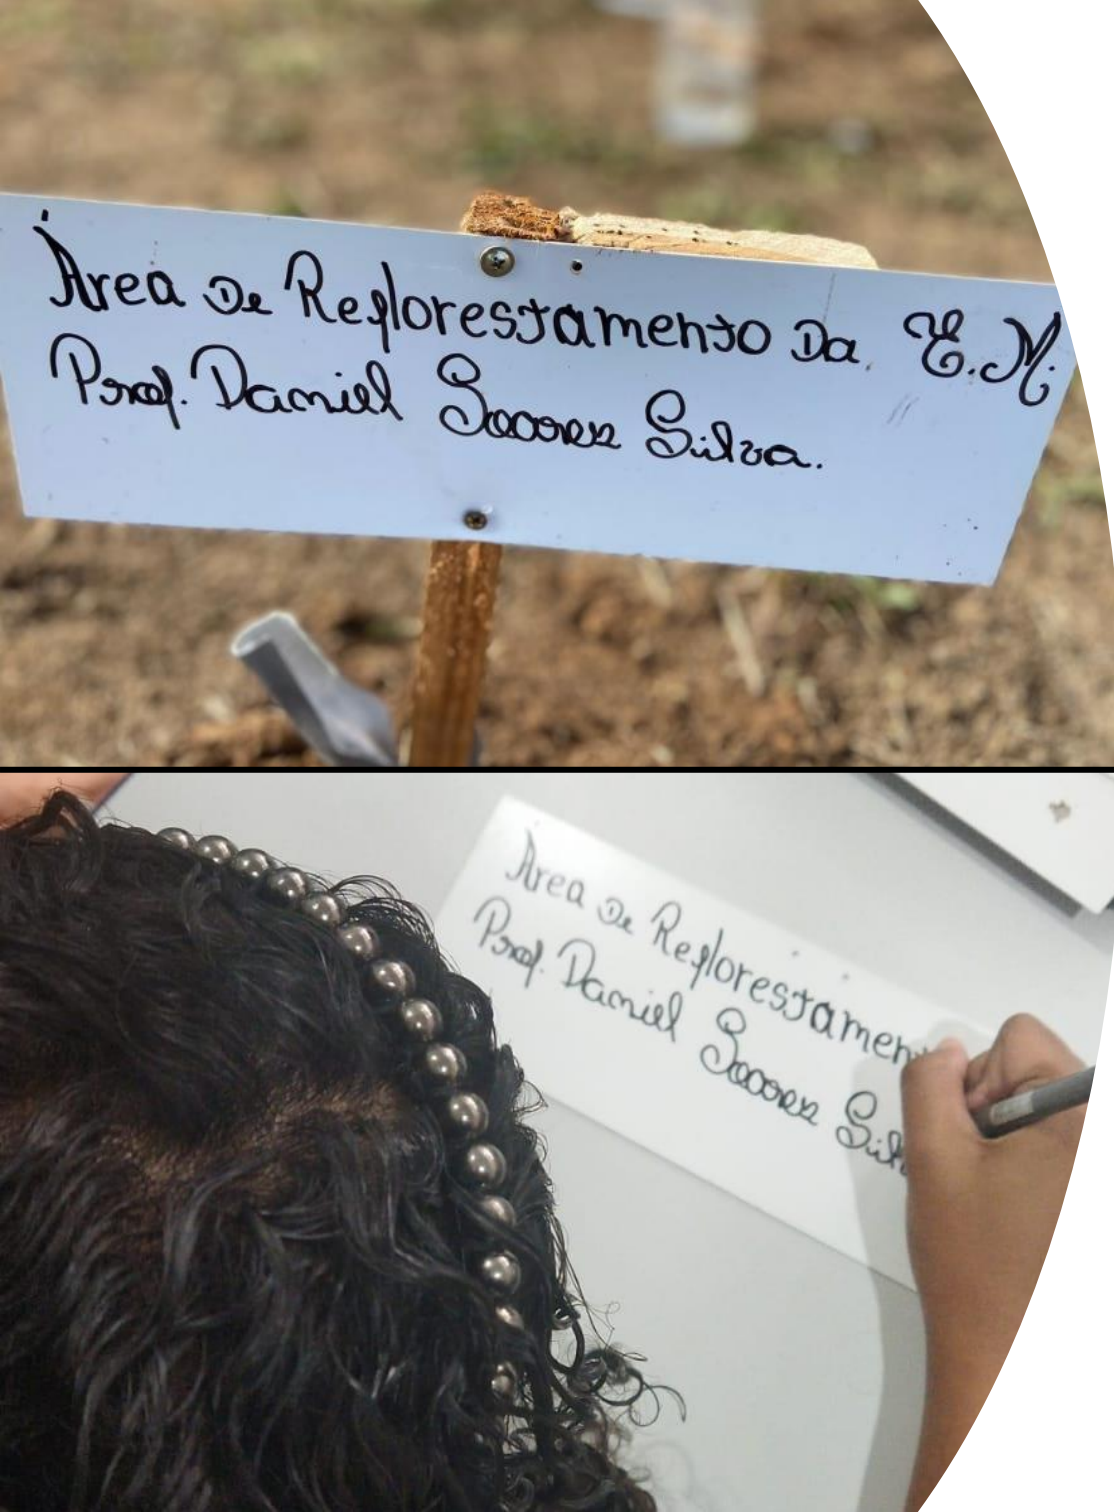 Área De Reflorestamento Da E.M.
Prof. Daniel Soares Silva.
Área De Reflorestament
Prof. Daniel Soares Silv